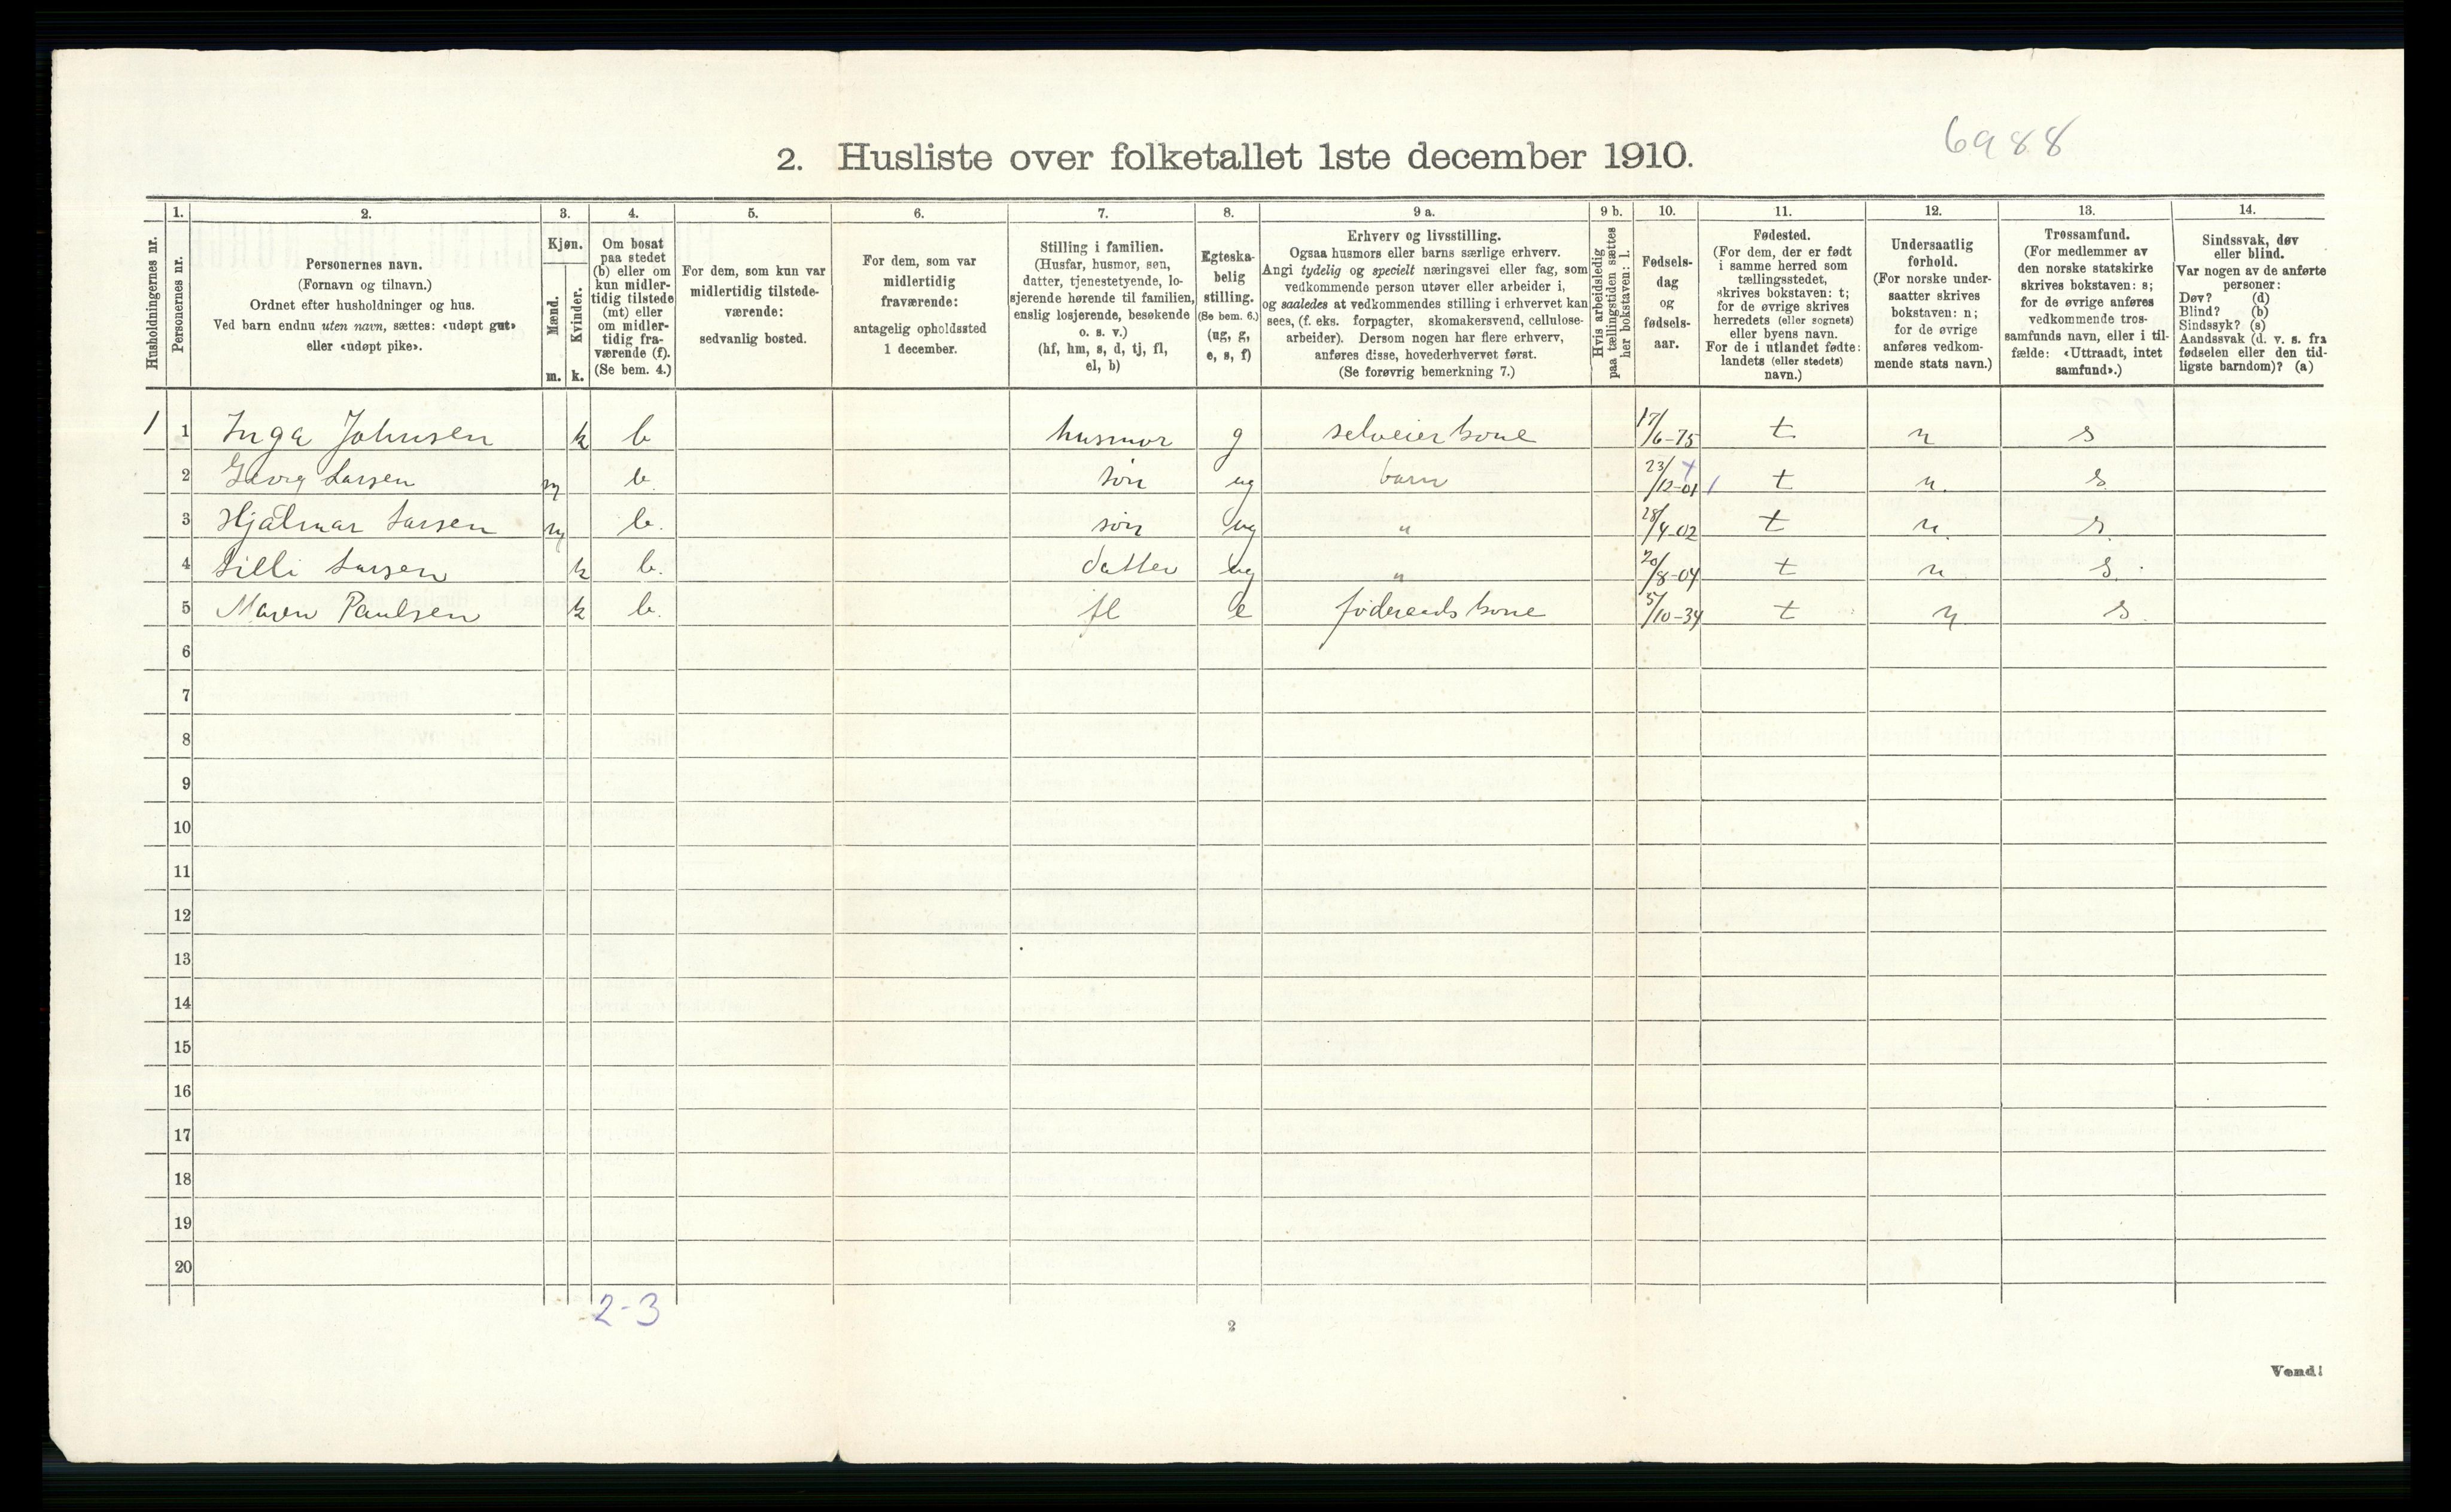 6988
2. Husliste over folketallet 1ste december 1910.
Husholdningernes nr.
1.
Personernes nr.
2.
Personernes navn.
(Fornavn og tilnavn.)
Ordnet efter husholdninger og hus.
Ved barn endnu uten navn, sættes: «udøpt gut»
eller «udøpt pike».
3.
Kjøn.
Mænd.
Kvinder.
m. k.
4.
Om bosat
paa stedet
(b) eller om
kun midler-
tidig tilstede
(mt) eller
om midler-
tidig fra-
værende (f).
(Se bem. 4.)
5.
For dem, som kun var
midlertidig tilstede-
værende:
sedvanlig bosted.
6.
For dem, som var
midlertidig
fraværende:
antagelig opholdssted
1 december.
7.
Stilling i familien.
(Husfar, husmor, søn,
datter, tjenestetyende, lo-
sjerende hørende til familien,
enslig losjerende, besøkende
o. s. v.)
(hf, hm, s, d, tj, fl,
el, b)
8.
Egteska-
belig
stilling.
(Se bem. 6.)
(ug, g,
e, s, f)
9 a.
Erhverv og livsstilling.
Ogsaa husmors eller barns særlige erhverv.
Angi tydelig og specielt næringsvei eller fag, som
vedkommende person utøver eller arbeider i,
og saaledes at vedkommendes stilling i erhvervet kan
sees, (f. eks. forpagter, skomakersvend, cellulose-
arbeider). Dersom nogen har flere erhverv,
anføres disse, hovederhvervet først.
(Se forøvrig bemerkning 7.)
9 b.
Hvis arbeidsledig
paa tællingstiden sættes
her bokstaven: l.
10.
Fødsels-
dag
og
fødsels-
aar.
11.
Fødested.
(For dem, der er født
i samme herred som
tællingsstedet,
skrives bokstaven: t;
for de øvrige skrives
herredets (eller sognets)
eller byens navn.
For de i utlandet fødte:
landets (eller stedets)
navn.)
12.
Undersaatlig
forhold.
(For norske under-
saatter skrives
bokstaven: n;
for de øvrige
anføres vedkom-
mende stats navn.)
13.
Trossamfund.
(For medlemmer av
den norske statskirke
skrives bokstaven: s;
for de øvrige anføres
vedkommende tros-
samfunds navn, eller i til-
fælde: «Uttraadt, intet
samfund».)
14.
Sindssvak, døv
eller blind.
Var nogen av de anførte
personer:
Døv? (d)
Blind? (b)
Sindssyk? (s)
Aandssvak (d. v. s. fra
fødselen eller den tid-
ligste barndom)? (a)
1 1 Inga Johnsen k b husmor g selveierkone 17/6-75 t n s
2 Georg Larsen m b. søn ug barn 23/12-01 t n. s.
3 Hjalmar Larsen m b. søn ug " 28/4-02 t n. s.
4 Lilli Larsen k b. datter ug " 20/8-04 t n s.
5 Maren Paulsen k b. fl e føderaadskone 5/10-34 t n s.
6
7
8
9
10
11
12
13
14
15
16
17
18
19
20
2-3
2
Vend!